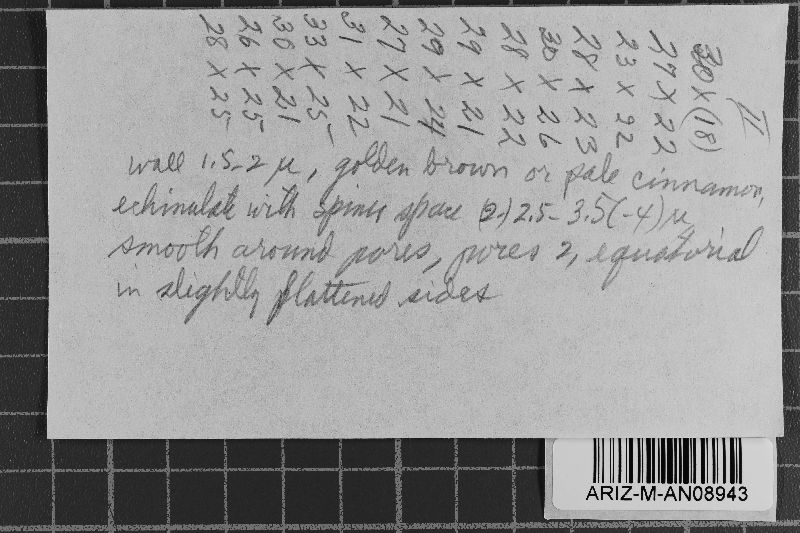 II
30 X (18)
27 X 22
23 X 22
28 X 23
30 X 26
28 X 22
29 X 21
29 X 24
27 X 21
31 X 22
33 X 25
30 X 21
26 X 25
28 X 25
wall 1.5-2 µ, golden brown or pale cinnamon,
echinulate with spines space (2-) 2.5-3.5(-4) µ
smooth around pores, pores 2, equatorial
in slightly flattened sides
ARIZ-M-AN08943